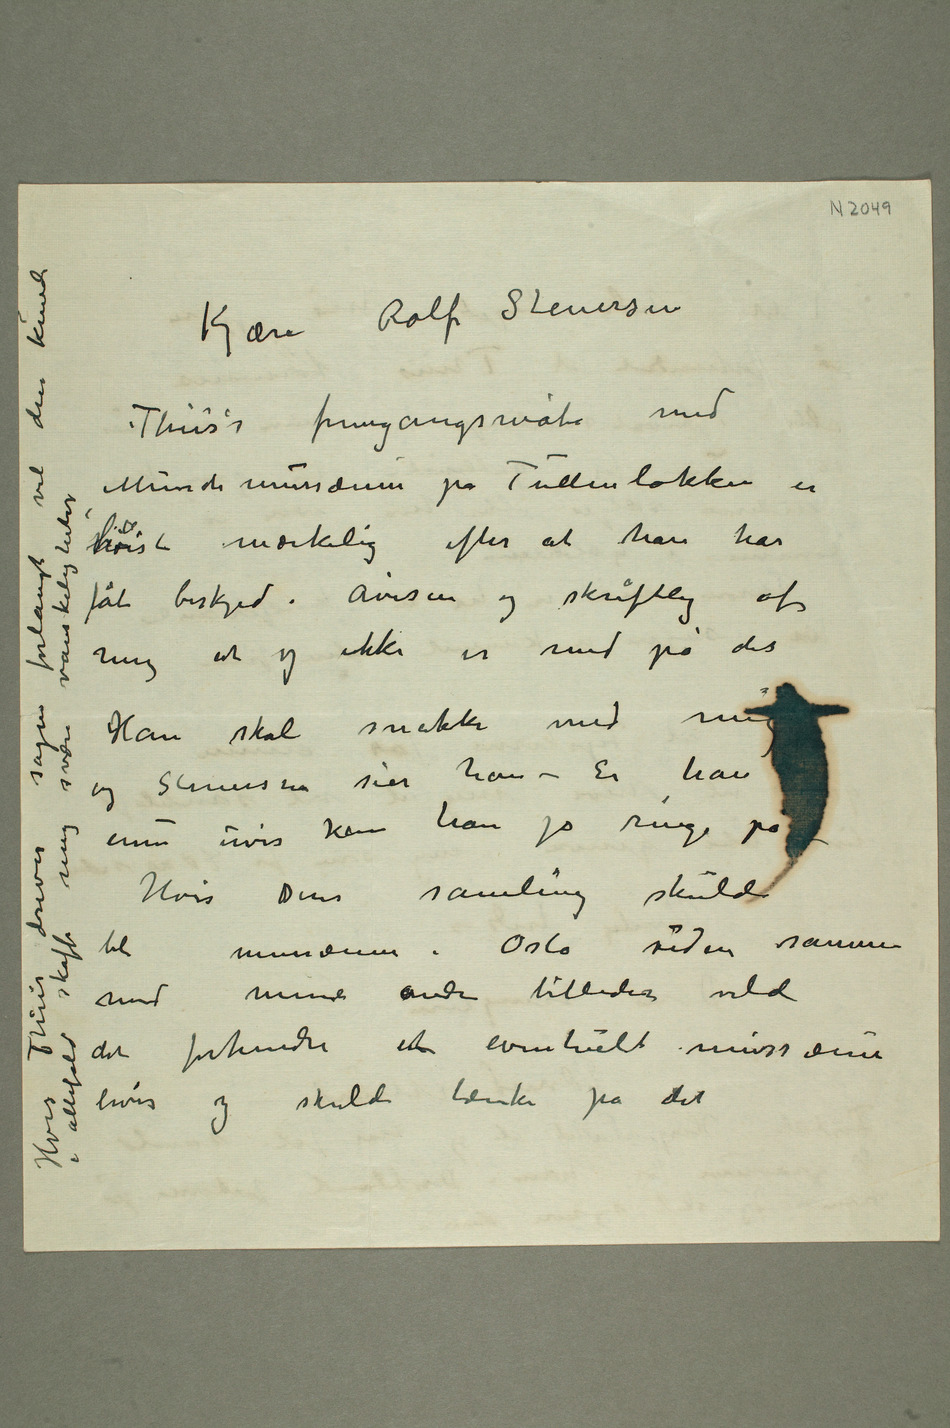 N 2049
Kjære Rolf Stenersen
Thiis's fremgangsmåte med
Munchmussæum på Tullinløkken er
høist mærkelig efter at han har
fåt beskjed i Avisen og skriftlig af
mig at jeg ikke er med på det
Han skal snakke med mig
og Stenersen sier han – Er han
ennu uvis kan han jo ringe på –
Hvis Deres samling skulde
til mussæum i Oslo siden sammen
med mine andre billeder vilde
det forhindre et eventuelt mussæum
hvis jeg skulde tænke på det
Hvis Thiis driver sagen forlangt vil den kunde
i allefald skaffe mig svære vanskeligheter